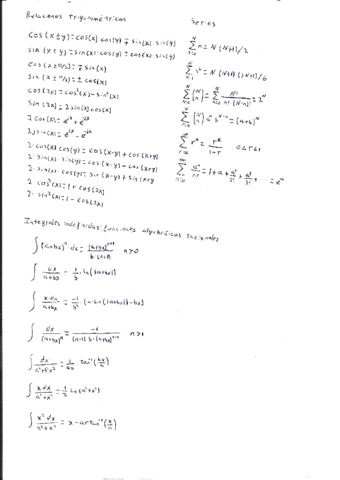 Relaciones Trigonométricas
cos(x±y)=cos(x) cos(y) ∓ sin(x) sin(y)
sin(x±y)=sin(x)·cos(y) ± cos(x)·sin(y)
cos(x±π/2)=∓ sin(x)
sin(x±π/2)=± cos(x)
cos(2x)=cos²(x)-sin²(x)
sin(2x)=2 sin(x) cos(x)
2 cos(x)=e^{jx}+e^{-jx}
2j sin(x)=e^{jx}-e^{-jx}
2·cos(x) cos(y)=cos(x-y)+cos(x+y)
2·sin(x)·sin(y)=cos(x-y)-cos(x+y)
2·sin(x)·cos(y)=sin(x-y)+sin(x+y)
2·cos²(x)=1+cos(2x)
2·sin²(x)=1-cos(2x)
Series
∑_{n=0}^{N} n = N(N+1)/2
∑_{n=0}^{N} n² = N(N+1)(2N+1)/6
∑_{n=0}^{N} (N n) = ∑_{n=0}^{N} N!/(n!(N-n)!) = 2^N
∑_{n=0}^{N} (N n) a^n b^{N-n} = (a+b)^N
∑ r^n = r^k/(1-r) 0<r<1
∑_{n=0}^{∞} a^n/n! = 1+a+a²/2!+a³/3!+...=e^a
Integrales indefinidas: funciones algebráicas racionales
∫(a+bx)^n·dx = (a+bx)^{n+1}/(b·(n+1)) n>0
∫ dx/(a+bx) = 1/b·ln(|a+bx|)
∫ x·dx/(a+bx) = -1/b²·(a·ln(|a+bx|)-bx)
∫ dx/(a+bx)^n = -1/((n-1)·b·(a+bx)^{n-1}) n>1
∫ dx/(a²+b²x²) = 1/ab Tan^{-1}(bx/a)
∫ x dx/(a²+x²) = 1/2 ln(a²+x²)
∫ x² dx/(a²+x²) = x-a·Tan^{-1}(x/a)